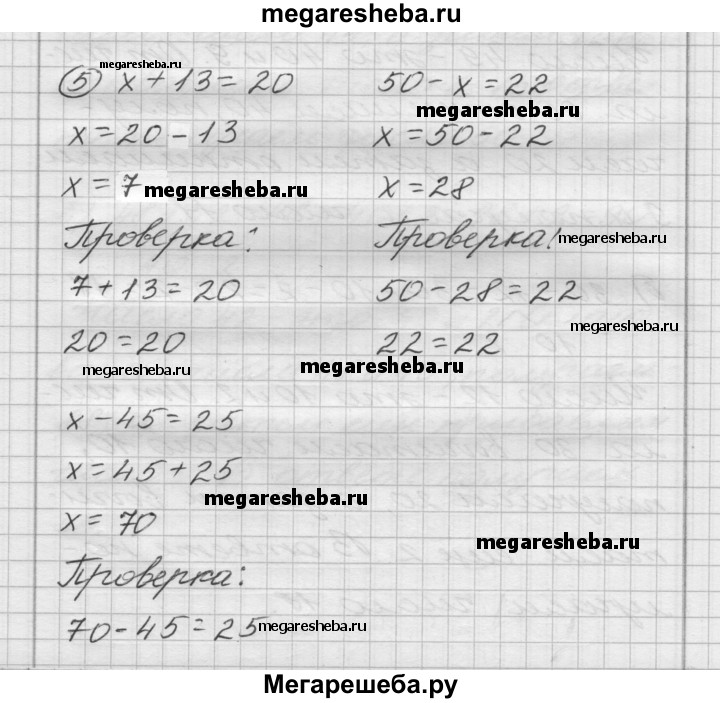 megaresheba.ru
megaresheba.ru
⑤ x + 13 = 20
x = 20 - 13
x = 7
megaresheba.ru
Проверка:
7 + 13 = 20
20 = 20
megaresheba.ru
50 - x = 22
megaresheba.ru
x = 50 - 22
x = 28
Проверка:
megaresheba.ru
50 - 28 = 22
megaresheba.ru
22 = 22
megaresheba.ru
x - 45 = 25
x = 45 + 25
megaresheba.ru
x = 70
megaresheba.ru
Проверка:
70 - 45 = 25
megaresheba.ru
Мегарешеба.ру